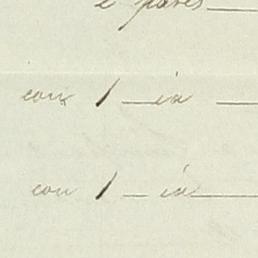 e pares
con 1 — ia —
con 1 — ia —